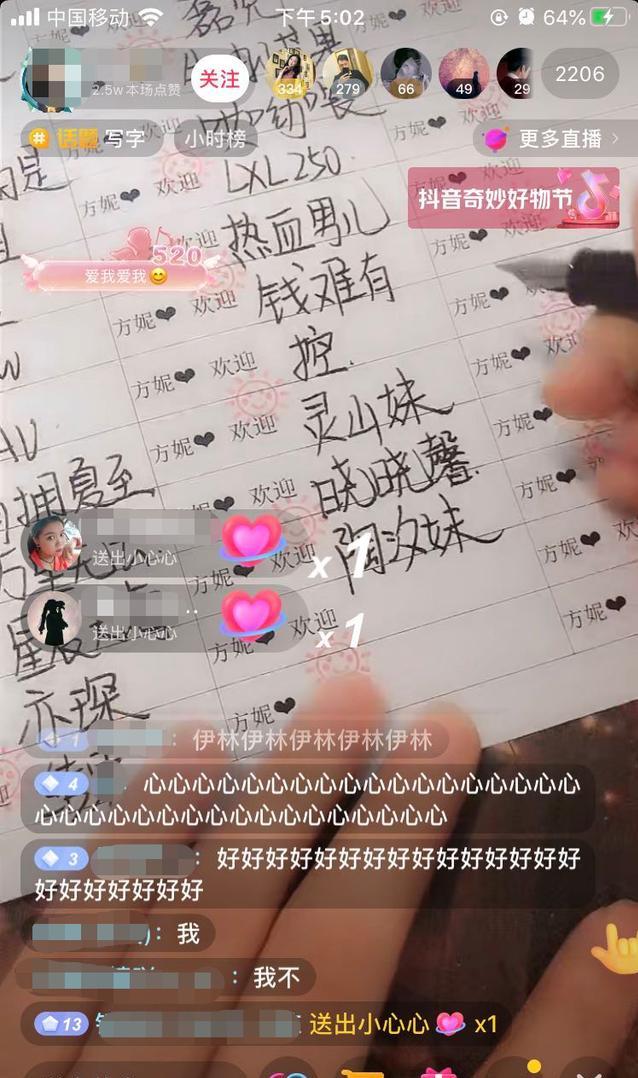 中国移动 下午5:02 64%
关注
2.5w本场点赞
334 279 66 49 29 2206
话题 写字 小时榜 更多直播
抖音奇妙好物节
520
爱我爱我😊
LXL250.
热血男儿
钱难有
挖.
灵山妹
晓晓馨.
陶汝妹
拥夏至
亦琛
方妮❤ 欢迎
方妮❤ 欢迎
方妮❤ 欢迎
方妮❤ 欢迎
方妮❤ 欢迎
方妮❤ 欢迎
方妮❤ 欢迎
方妮❤
送出小心心 x1
送出小心心 x1
1 : 伊林伊林伊林伊林伊林
4 : 心心心心心心心心心心心心心心心心心心
心心心心心心心心心心心心心心心心心
3 : 好好好好好好好好好好好好好好好
好好好好好好好
: 我
: 我不
13 送出小心心 x1